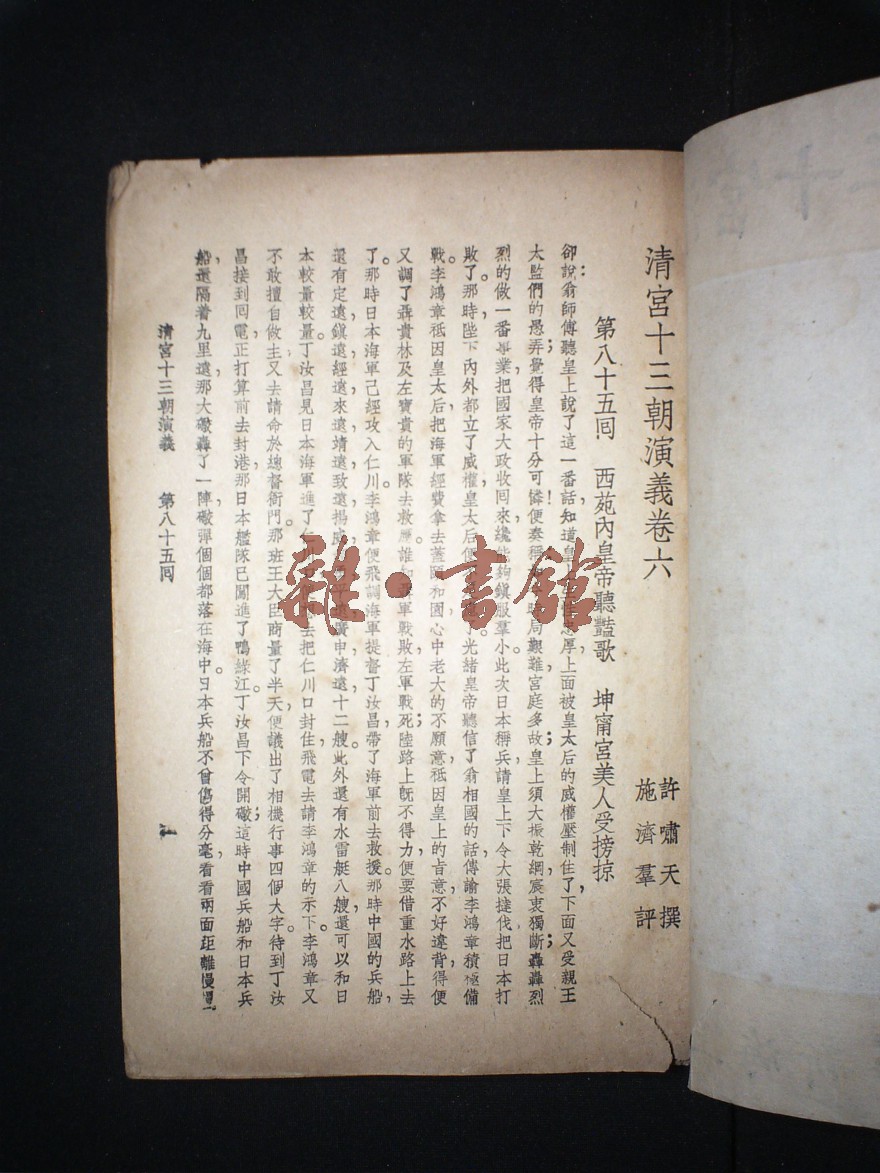 清宮十三朝演義卷六
許嘯天撰
施濟羣評
第八十五囘 西苑內皇帝聽豔歌 坤甯宮美人受搒掠
卻說翁師傅聽皇上說了這一番話知道皇上忠厚上面被皇太后的威權壓制住了下面又受親王
太監們的愚弄覺得皇帝十分可憐便奏稱時局艱難宮庭多故皇上須大振乾綱宸衷獨斷轟轟烈
烈的做一番事業把國家大政收囘來纔能夠鎭服羣小此次日本稱兵請皇上下令大張撻伐把日本打
敗了那時陛下內外都立了威權皇太后便光緒皇帝聽信了翁相國的話傳諭李鴻章積極備
戰李鴻章祗因皇太后把海軍經費拿去蓋頤和園心中老大的不願意祗因皇上的旨意不好違背得便
又調了聶貴林及左寶貴的軍隊去救應誰知聶軍戰敗左軍戰死陸路上旣不得力便要借重水路上去
了那時日本海軍已經攻入仁川李鴻章便飛調海軍提督丁汝昌帶了海軍前去救援那時中國的兵船
還有定遠鎭遠經遠來遠靖遠致遠揚威平遠廣甲濟遠十二艘此外還有水雷艇八艘還可以和日
本較量較量丁汝昌見日本海軍進了仁川去把仁川口封住飛電去請李鴻章的示下李鴻章又
不敢擅自做主又去請命於總督衙門那班王大臣商量了半天便議出了相機行事四個大字待到丁汝
昌接到囘電正打算前去封港那日本艦隊已闖進了鴨綠江丁汝昌下令開礮這時中國兵船和日本兵
船還隔着九里遠那大礮轟了一陣礮彈個個都落在海中日本兵船不曾傷得分毫看看兩面距離慢慢
清宮十三朝演義 第八十五囘 一
雜·書館